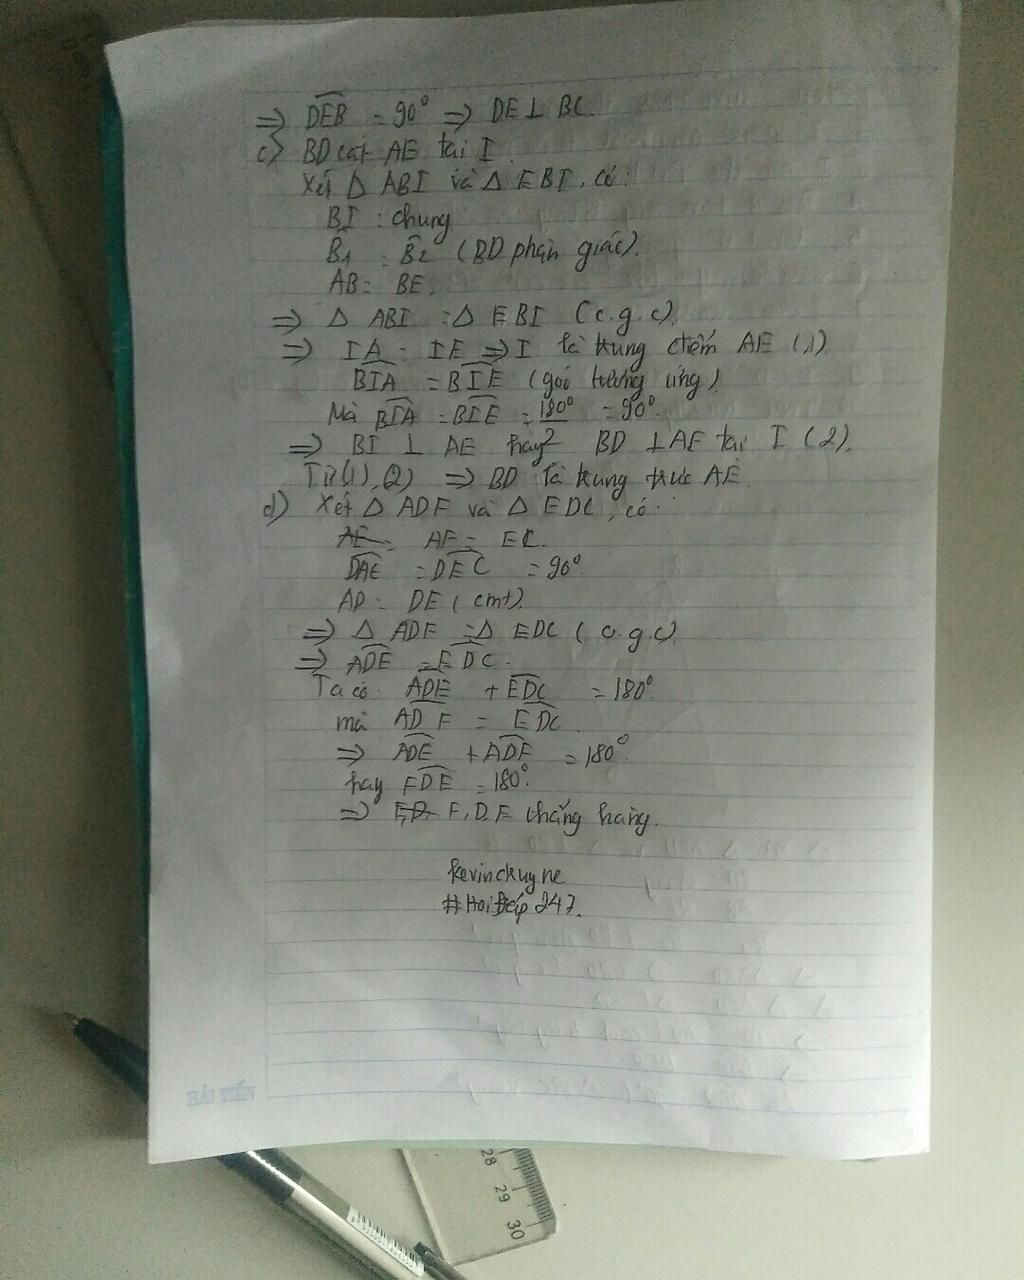 => DEB = 90° => DE ⊥ BC.
c) BD cắt AE tại I.
Xét Δ ABI và Δ EBI, có:
BI : chung
B1 = B2 (BD phân giác).
AB = BE.
=> Δ ABI = Δ EBI (c.g.c).
=> IA = IE => I là trung điểm AE (1)
BIA = BIE (góc tương ứng)
Mà BIA = BIE = 180°/2 = 90°.
=> BI ⊥ AE hay BD ⊥ AE tại I (2).
Từ (1), (2) => BD là trung trực AE.
d) Xét Δ ADF và Δ EDC, có:
AF = EC.
DAE = DEC = 90°
AD = DE (cmt).
=> Δ ADF = Δ EDC (c.g.c)
=> ADE = EDC.
Ta có: ADE + EDC = 180°.
mà ADF = EDC.
=> ADE + ADF = 180°.
hay FDE = 180°.
=> F, D, E thẳng hàng.
kevinchuyne
#HoiĐáp247.
28
29
30